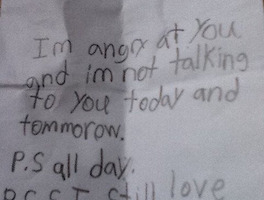 Im angry at You
and im not talking
to You today and
tommorow.
P.S all day.
P.S.S I still love